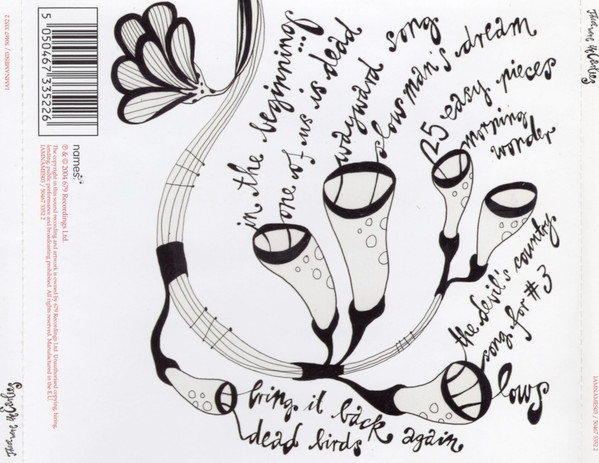 5 050467 335226
names:
℗ & © 2004 679 Recordings Ltd.
The copyright in this sound recording and artwork is owned by 679 Recordings Ltd. Unauthorised copying, hiring,
lending, public performance and broadcasting prohibited. All rights reserved. Manufactured in the E.U.
IAMNAMES03 / 50467 3352 2
in the beginning...
one of us is dead
wayward song
slow man's dream
25 easy pieces
morning wonder
the devil's country
song for #3
lows
bring it back again
dead birds
IAMNAMES03 / 50467 3352 2
IAMNAMES03 / 50467 3352 2